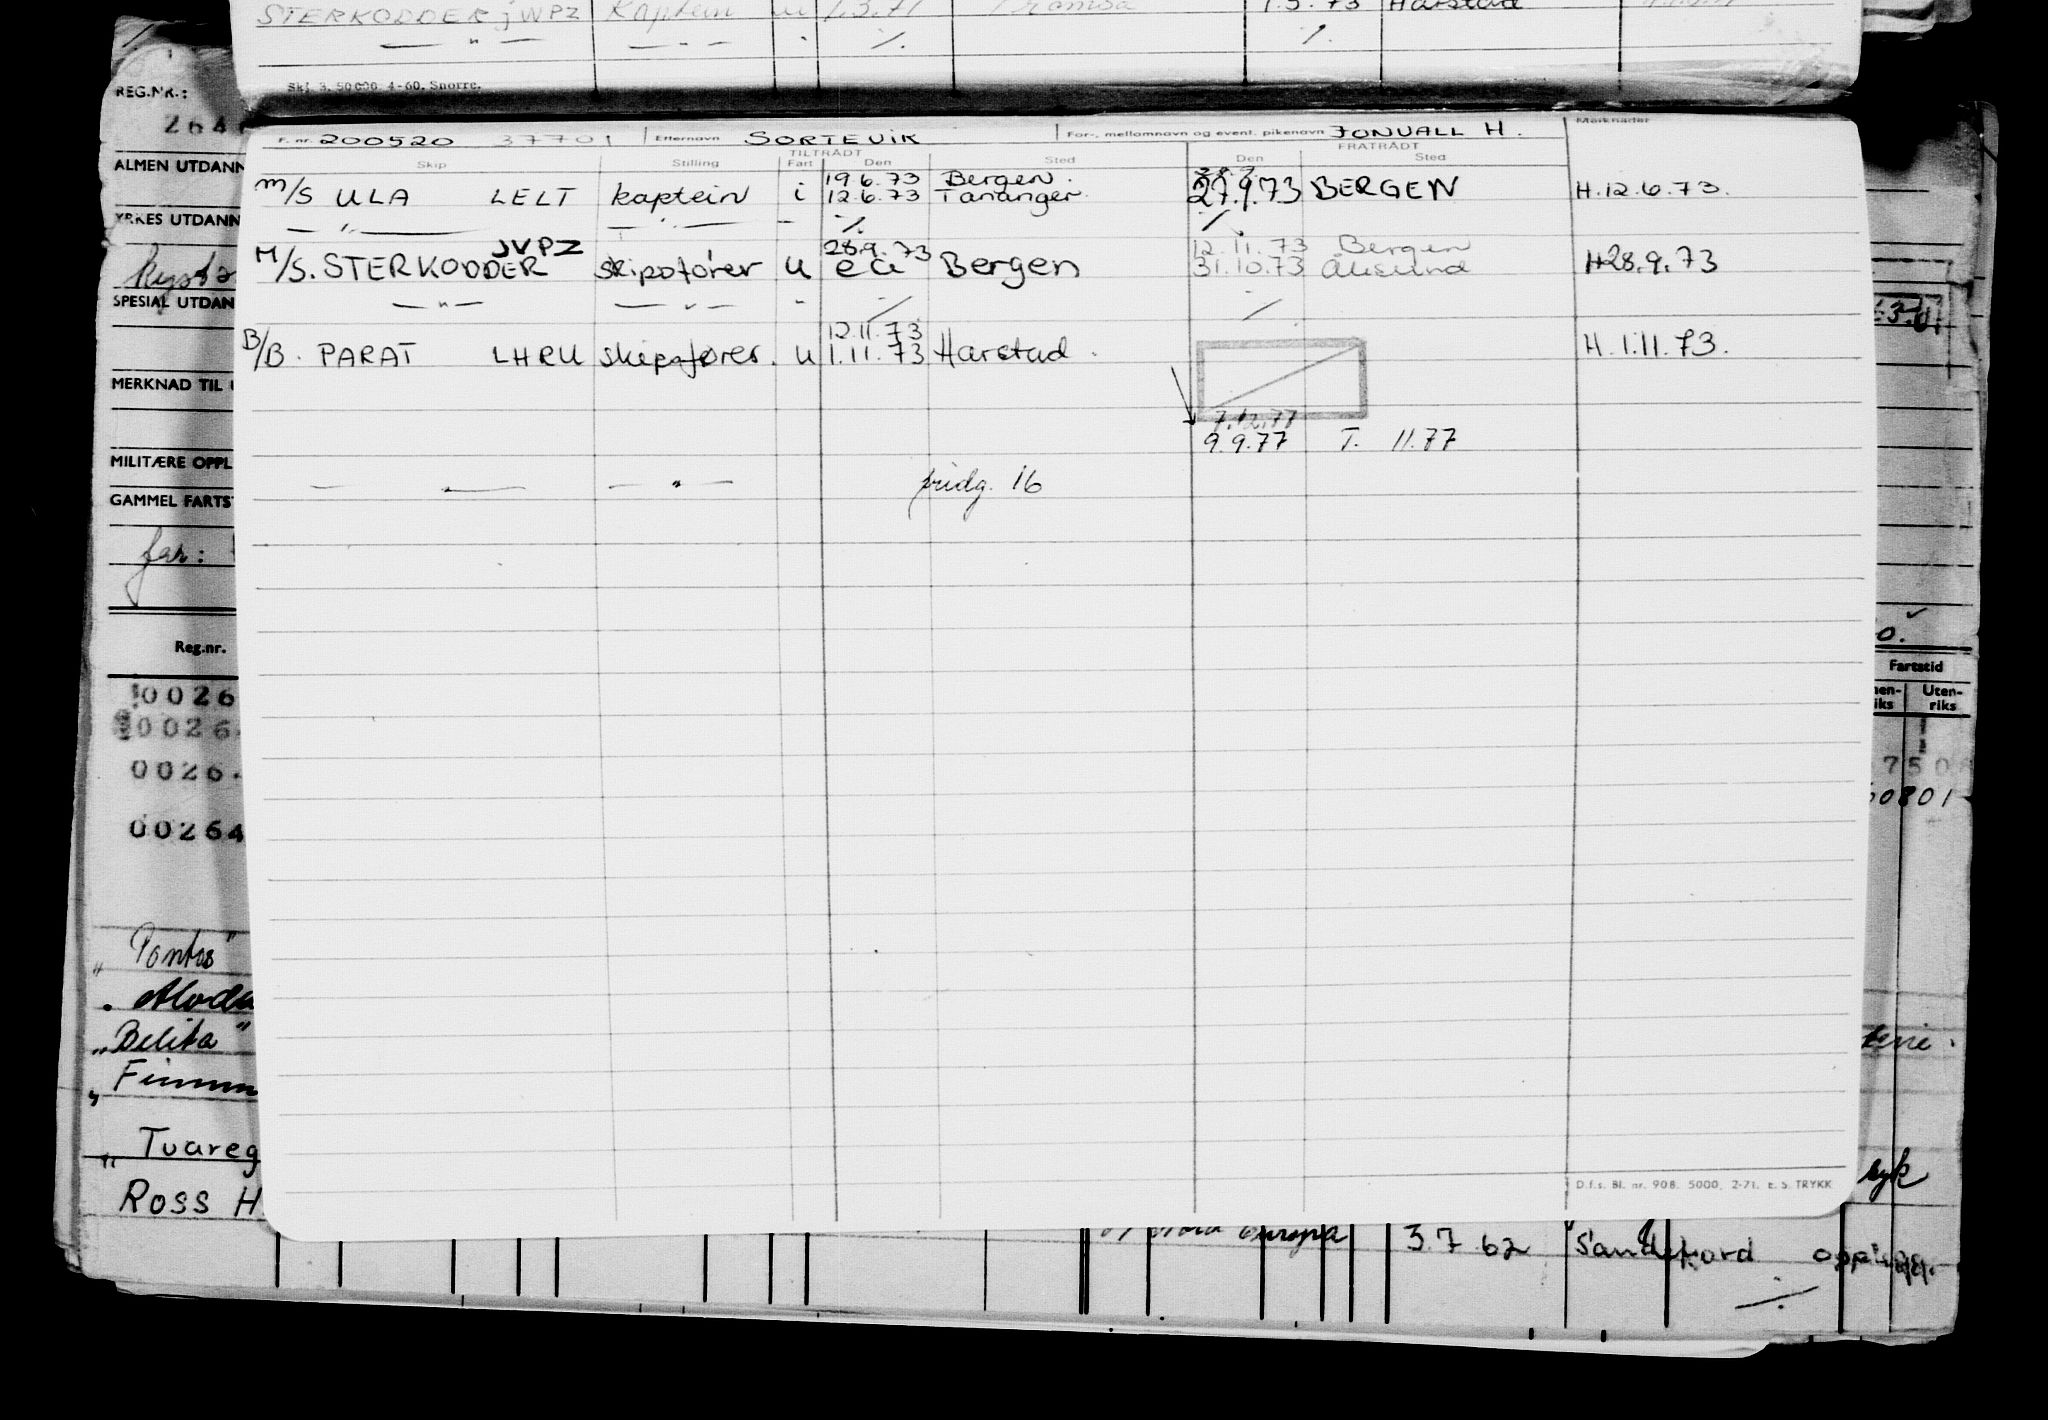 STERKODDER jWPZ Kaptein u 1.3.71 Tromsø 1.5.73 Harstad
— " — — " — . ⁒ ⁒
Skj. 3. 50 000 4-60. Snorre.
REG.NR.:
264
ALMEN UTDANN
YRKES UTDANN
SPESIAL UTDAN
MERKNAD TIL
MILITÆRE OPPL
GAMMEL FARTS
far:
Reg.nr.
0026
0026
0026
00264
"Pontos"
"Belita"
Tuareg
ROSS H
F. nr. 200520 37701 Etternavn SORTEVIK For-, mellomnavn og event. pikenavn JONVALL H. Merknader
TILTRÅDT FRATRÅDT
Skip Stilling Fart Den Sted Den Sted
19.6.73 Bergen.
M/S ULA LELT kaptein i 12.6.73 Tananger 27.9.73 BERGEN H.12.6.73.
— " — — " — - ⁒ ⁒
JVPZ 28.9.73 12.11.73 Bergen
M/S. STERKODDER skipsfører u ca Bergen 31.10.73 Ålesund H28.9.73
— " — — " — - ⁒ ⁒
12.11.73
B/B. PARAT LHRU skipsfører. u 1.11.73 Harstad. H. 1.11.73.
7.12.77
9.9.77 T. 11.77
— " — — " — fridg. 16
D.f.s. Bl. nr. 908. 5000. 2-71. E. S. TRYKK
0.
Fartstid
Uten-
riks
750
60801
syk
Europa 3.7 62 Sandefjord opplegg.
⁒